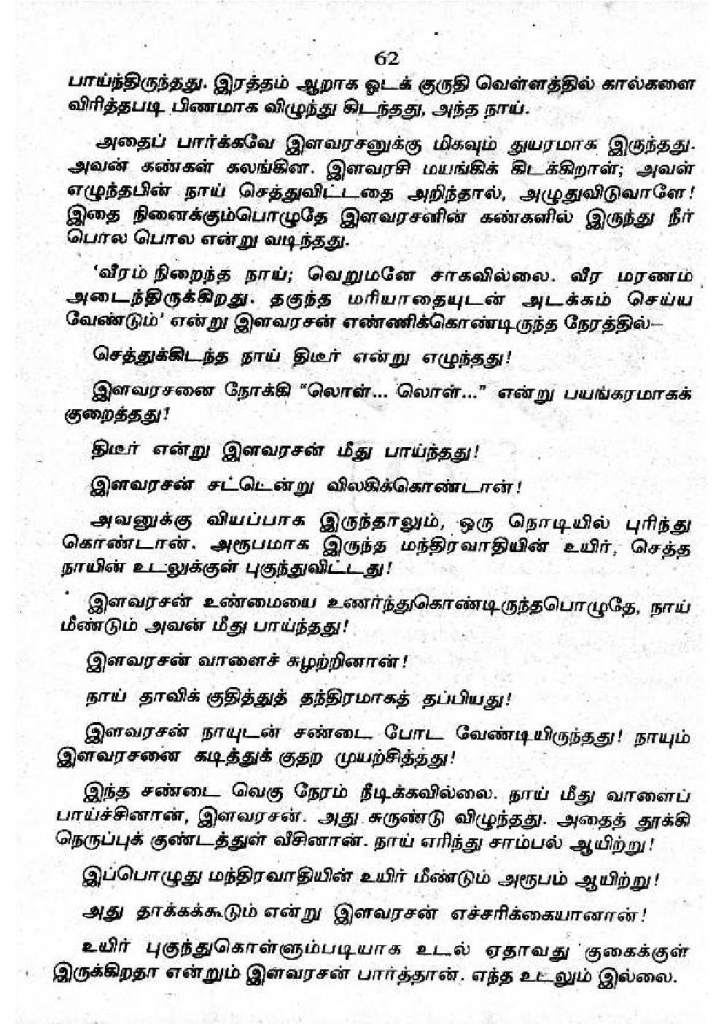 62
பாய்ந்திருந்தது. இரத்தம் ஆறாக ஓடக் குருதி வெள்ளத்தில் கால்களை
விரித்தபடி பிணமாக விழுந்து கிடந்தது, அந்த நாய்.
அதைப் பார்க்கவே இளவரசனுக்கு மிகவும் துயரமாக இருந்தது.
அவன் கண்கள் கலங்கின. இளவரசி மயங்கிக் கிடக்கிறாள்; அவள்
எழுந்தபின் நாய் செத்துவிட்டதை அறிந்தால், அழுதுவிடுவாளே!
இதை நினைக்கும்பொழுதே இளவரசனின் கண்களில் இருந்து நீர்
பொல பொல என்று வடிந்தது.
'வீரம் நிறைந்த நாய்; வெறுமனே சாகவில்லை. வீர மரணம்
அடைந்திருக்கிறது. தகுந்த மரியாதையுடன் அடக்கம் செய்ய
வேண்டும்' என்று இளவரசன் எண்ணிக்கொண்டிருந்த நேரத்தில்–
செத்துக்கிடந்த நாய் திடீர் என்று எழுந்தது!
இளவரசனை நோக்கி “லொள்... லொள்...” என்று பயங்கரமாகக்
குறைத்தது!
திடீர் என்று இளவரசன் மீது பாய்ந்தது!
இளவரசன் சட்டென்று விலகிக்கொண்டான்!
அவனுக்கு வியப்பாக இருந்தாலும், ஒரு நொடியில் புரிந்து
கொண்டான். அரூபமாக இருந்த மந்திரவாதியின் உயிர், செத்த
நாயின் உடலுக்குள் புகுந்துவிட்டது!
இளவரசன் உண்மையை உணர்ந்துகொண்டிருந்தபொழுதே, நாய்
மீண்டும் அவன் மீது பாய்ந்தது!
இளவரசன் வாளைச் சுழற்றினான்!
நாய் தாவிக் குதித்துத் தந்திரமாகத் தப்பியது!
இளவரசன் நாயுடன் சண்டை போட வேண்டியிருந்தது! நாயும்
இளவரசனை கடித்துக் குதற முயற்சித்தது!
இந்த சண்டை வெகு நேரம் நீடிக்கவில்லை. நாய் மீது வாளைப்
பாய்ச்சினான், இளவரசன். அது சுருண்டு விழுந்தது. அதைத் தூக்கி
நெருப்புக் குண்டத்துள் வீசினான். நாய் எரிந்து சாம்பல் ஆயிற்று!
இப்பொழுது மந்திரவாதியின் உயிர் மீண்டும் அரூபம் ஆயிற்று!
அது தாக்கக்கூடும் என்று இளவரசன் எச்சரிக்கையானான்!
உயிர் புகுந்துகொள்ளும்படியாக உடல் ஏதாவது குகைக்குள்
இருக்கிறதா என்றும் இளவரசன் பார்த்தான். எந்த உடலும் இல்லை.